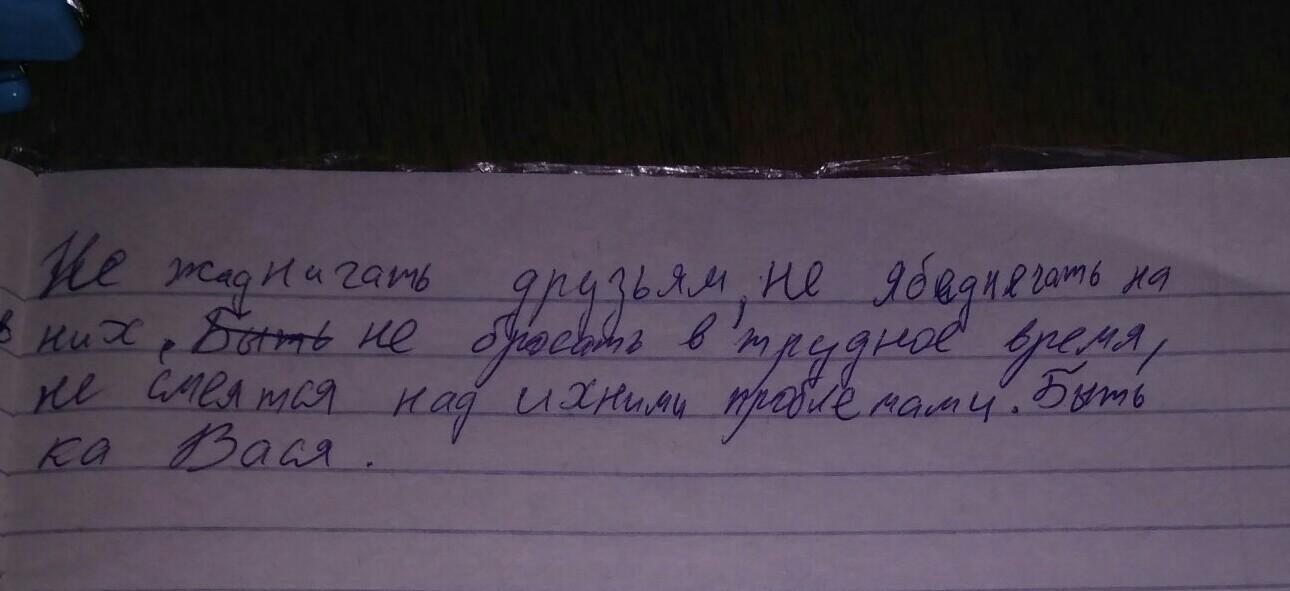 Не жаднигать друзьям, не ябеднягать на
них. Быть не бросать в трудное время,
не смеятся над ихними проблемами. Быть
ка Вася.